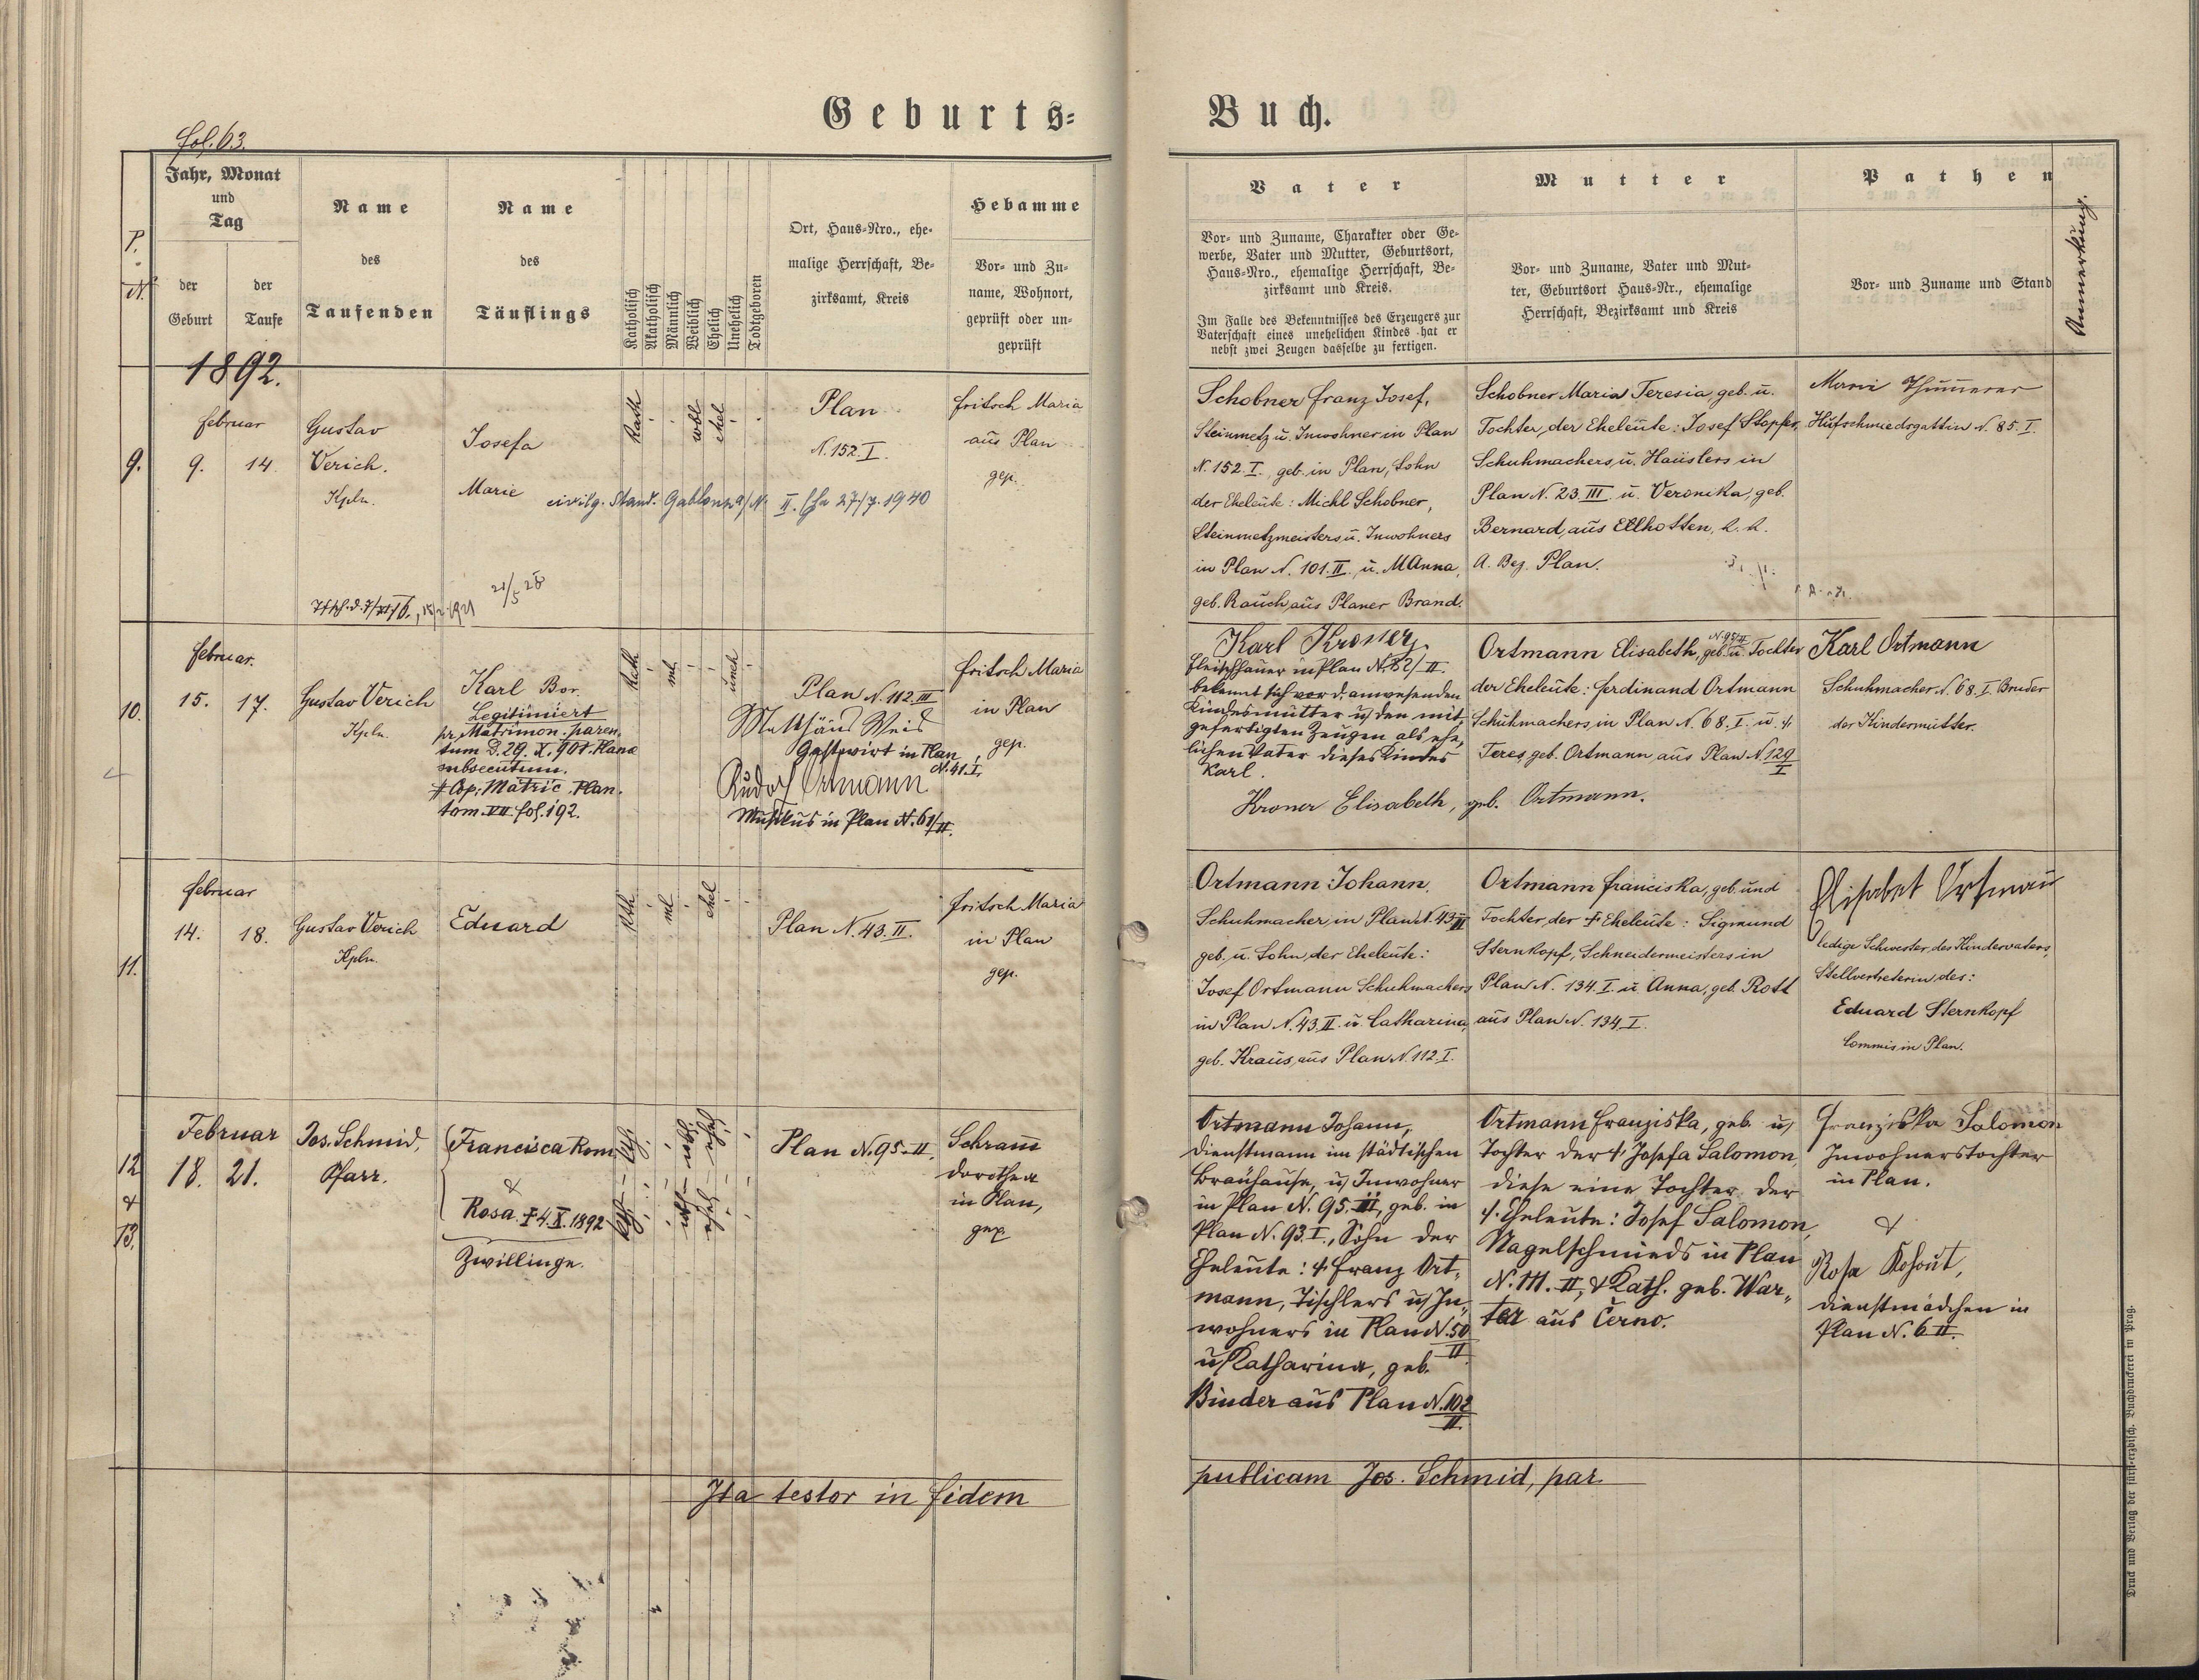 Geburts-Buch.
fol. 63.
P.
N.
Jahr, Monat
und
Tag
der
Geburt
der
Taufe
Name
des
Taufenden
Name
des
Täuflings
Katholisch
Akatholisch
Männlich
Weiblich
Ehelich
Unehelich
Todtgeboren
Ort, Haus-Nro., ehe-
malige Herrschaft, Be-
zirksamt, Kreis
Hebamme
Vor- und Zu-
name, Wohnort,
geprüft oder un-
geprüft
Vater
Vor- und Zuname, Charakter oder Ge-
werbe, Vater und Mutter, Geburtsort,
Haus-Nro., ehemalige Herrschaft, Be-
zirksamt und Kreis.
Im Falle des Bekenntnisses des Erzeugers zur
Vaterschaft eines unehelichen Kindes hat er
nebst zwei Zeugen dasselbe zu fertigen.
Mutter
Vor- und Zuname, Vater und Mut-
ter, Geburtsort Haus-Nr., ehemalige
Herrschaft, Bezirksamt und Kreis
Pathen
Vor- und Zuname und Stand
Anmerkung.
1892.
9.
Februar
9. 14.
Gustav
Verich.
Kpln.
Josefa
Marie
civilg. Stand. Gablonz a/N. II. 27/7. 1940
21/5 28
Kath
wbl
ehel
Plan
N. 152. I.
Fritsch Maria
aus Plan
gep.
Schobner Franz Josef,
Steinmetz u. Inwohner in Plan
N. 152. I., geb. in Plan, Sohn
der Eheleute: Michl Schobner,
Steinmetzmeisters u. Inwohners
in Plan N. 101. II. u. M Anna,
geb. Rauch aus Planer Brand.
Schobner Maria Teresia, geb. u.
Tochter, der Eheleute: Josef Stopfer,
Schuhmachers, u. Häuslers in
Plan N. 23. III. u. Veronika, geb.
Bernard, aus Ellhotten,
A. Bez. Plan.
Hufschmiedsgattin N. 85. I.
10.
Februar.
15. 17.
Gustav Verich
Kpln.
Karl Bor.
Legitimiert
pr. Matrimon. paren-
tum D. 29. X. 901. Planae
subsecutum.
# Cop. Matric. Plan.
tom. VII fol. 192.
Kath
ml
uneh
Plan N. 112. III
Matthäus Weis
Gastwirt in Plan
N. 41. I.
Rudolf Ortmann
Musikus in Plan N. 61/II.
Fritsch Maria
in Plan
gep.
Karl Kroner,
Fleischhauer in Plan N. 82/II
bekennt sich vor d. anwesenden
Kindesmutter u. den mit-
gefertigten Zeugen als ehe-
lichen Vater dieses Kindes
Karl.
Kroner Elisabeth, geb. Ortmann.
Ortmann Elisabeth, N. 95/II geb. u. Tochter
der Eheleute: Ferdinand Ortmann
Schuhmachers, in Plan N. 68. I. u. †
Teres, geb. Ortmann, aus Plan N. 129
I
Karl Ortmann
Schuhmacher N. 68. I. Bruder
der Kindermutter.
11.
Februar
14. 18.
Gustav Verich
Kpln.
Eduard
Kth.
ml
ehel
Plan N. 43. II.
Fritsch Maria
in Plan
gep.
Ortmann Johann,
Schuhmacher, in Plan N. 43 II
geb. u. Sohn, der Eheleute:
Josef Ortmann Schuhmachers
in Plan N. 43. II. u. Catharina,
geb. Kraus, aus Plan N. 112. I.
Ortmann Franciska, geb. und
Tochter, der † Eheleute: Sigmund
Sternkopf, Schneidermeisters in
Plan N. 134. I. u. Anna, geb. Rott
aus Plan N. 134. I.
Elisabet Ortman
ledige Schwester, des Kindervaters,
Stellvertreterin des:
Eduard Sternkopf
Commis in Plan.
12
&
13.
Februar
18. 21.
Jos. Schmid,
Pfarr.
Francisca Rom.
&
Rosa. † 4. X. 1892
Zwillinge.
Plan N. 95. II.
Schram
Dorothea
in Plan,
gep
Ortmann Johann,
Dienstmann im städtischen
Bräuhause, u. Inwohner
in Plan N. 95. II, geb. in
Plan N. 93. I., Sohn der
Eheleute: † Franz Ort-
mann, Tischlers u. In-
wohners in Plan N. 50
II
u. Katharina, geb.
Binder aus Plan N. 102
II.
Ortmann Franziska, geb. u.
Tochter der †, Josefa Salomon,
diese eine Tochter der
†. Eheleute: Josef Salomon,
Nagelschmieds in Plan
N. 111. II, & Kath. geb. War-
ter aus Černo.
Franziska Salomon
Inwohnerstochter
in Plan.
&
Rosa Kohout,
Dienstmädchen in
Plan N. 6 II.
Ita testor in fidem publicam Jos. Schmid, par.
Druck und Verlag der fürsterzbisch. Buchdruckerei in Prag.